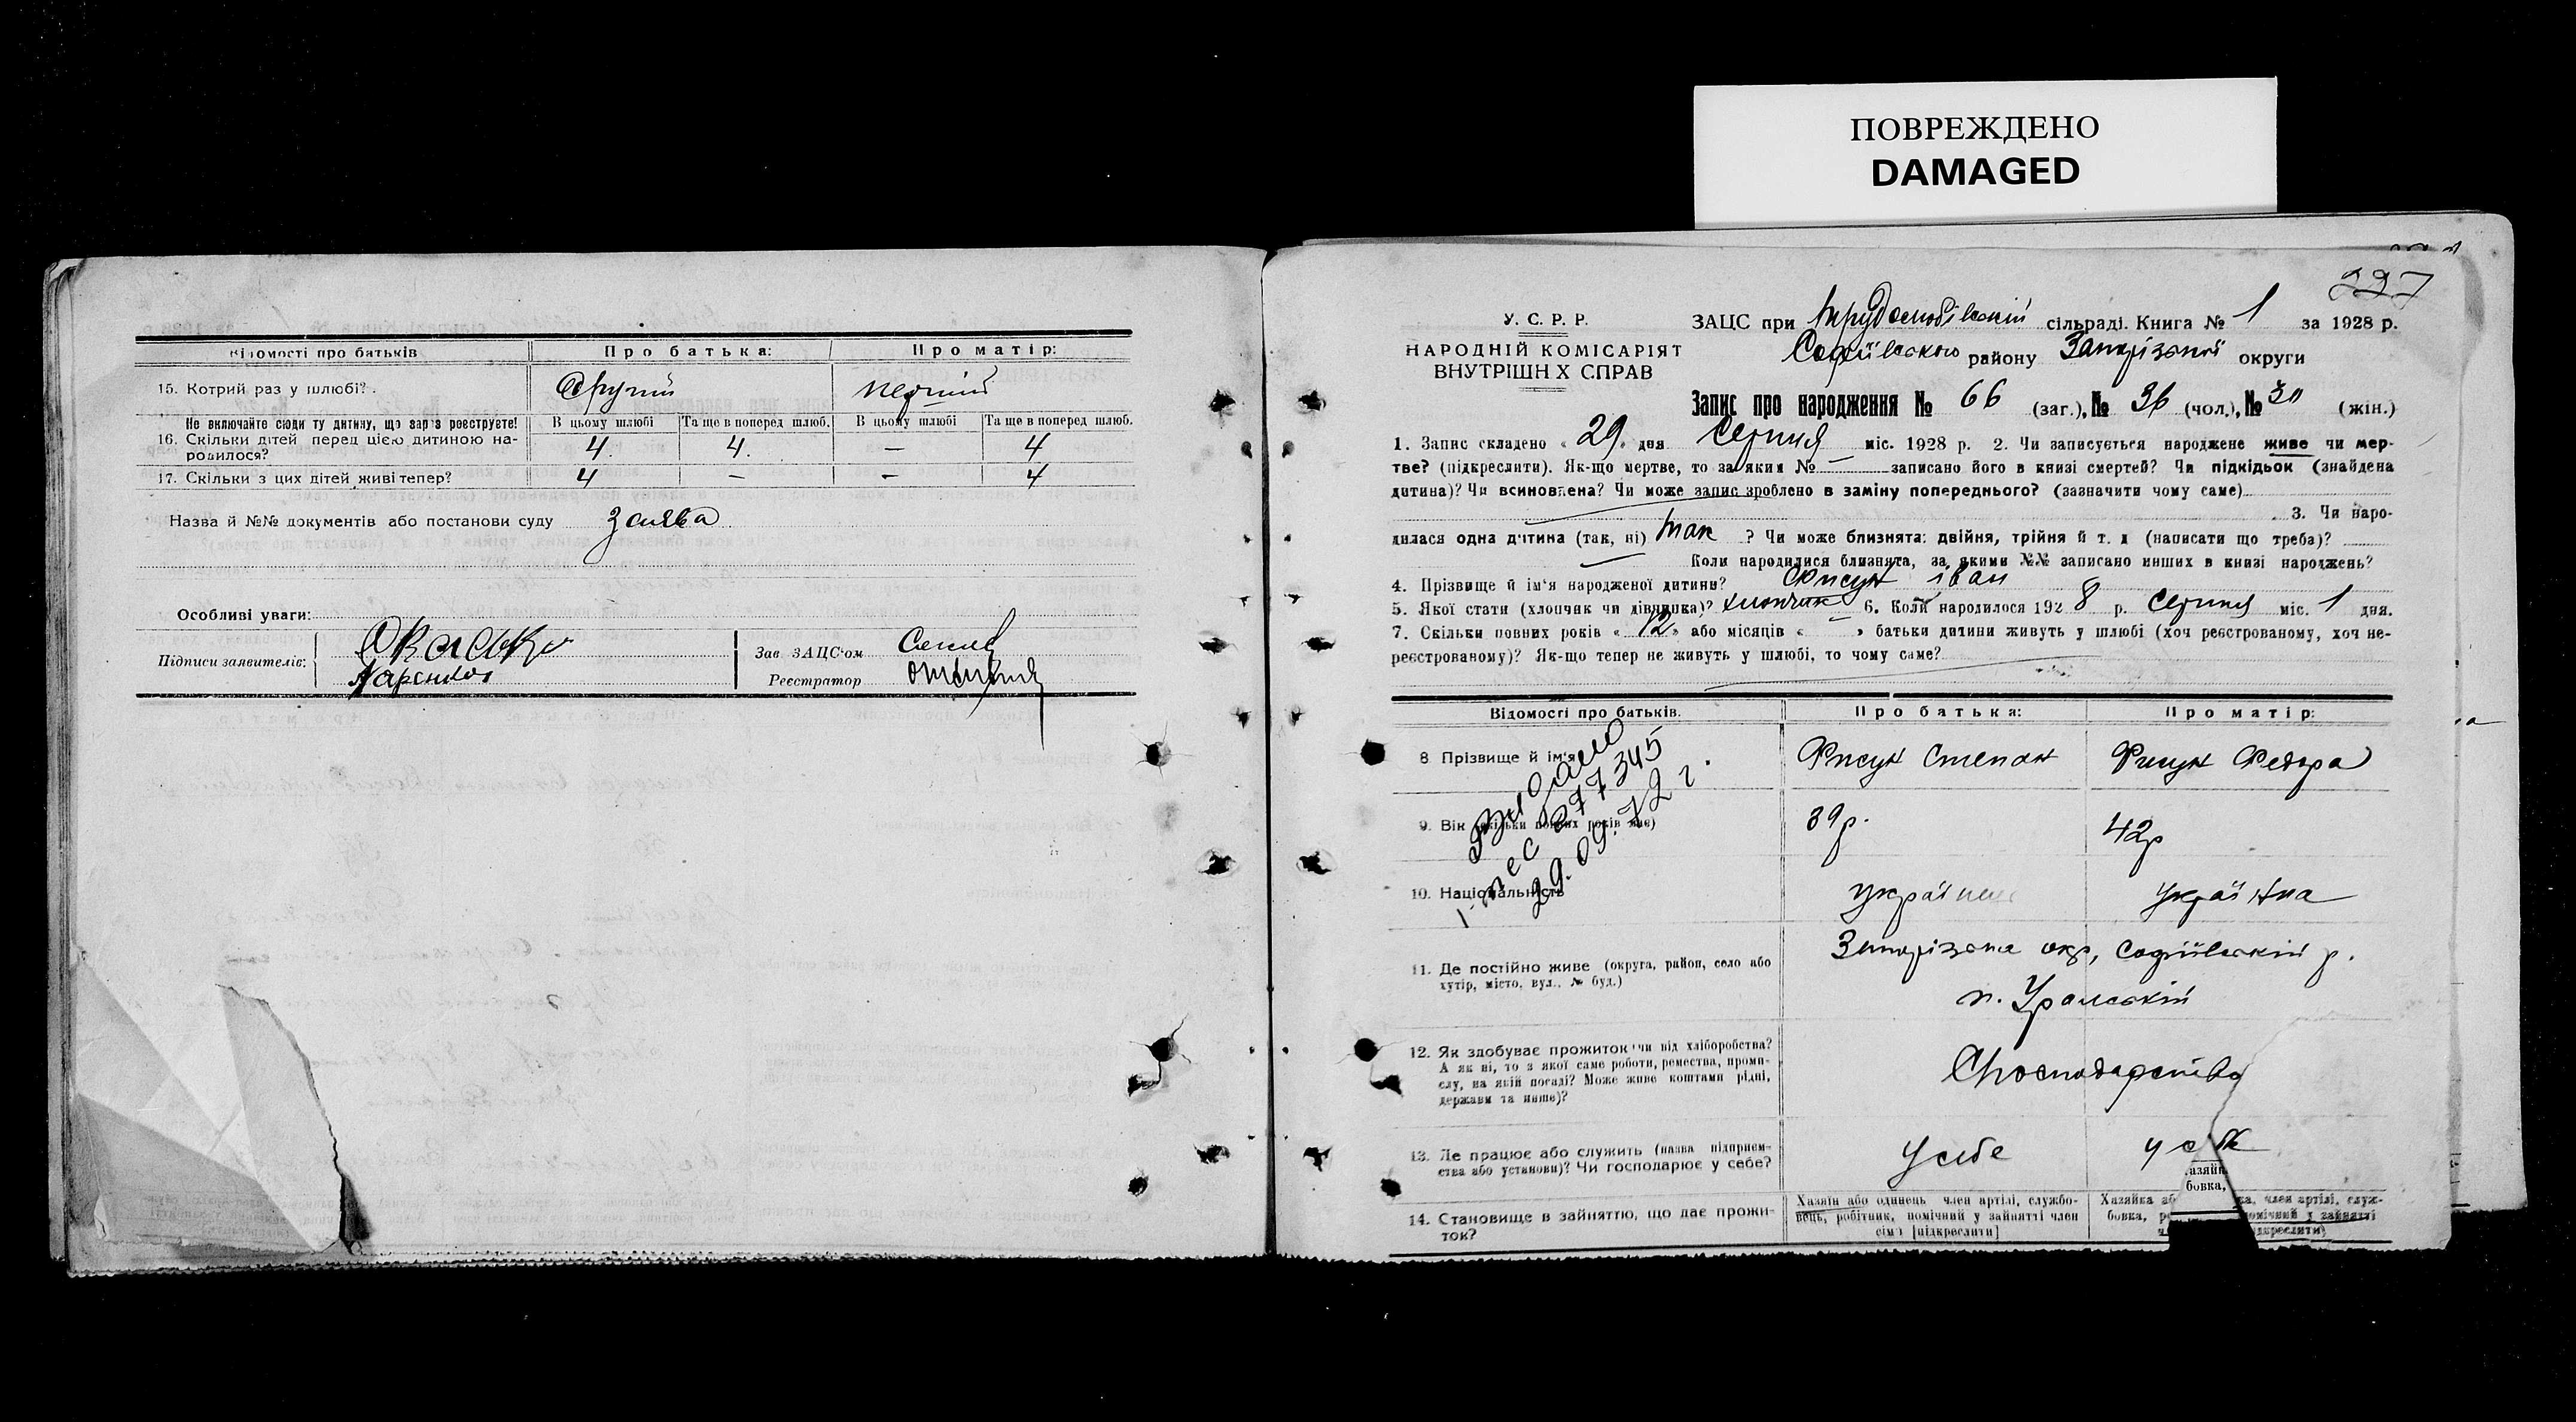 ПОВРЕЖДЕНО
DAMAGED
Відомости про батьків
Про батька:
Про матір:
15. Котрий раз у шлюбі?
Другий
перший
Не включайте сюди ту дитину, що зараз реєструєте!
16. Скільки дітей перед цією дитиною на-
родилося?
В цьому шлюбі
Та ще в поперед шлюб.
В цьому шлюбі
Та ще в поперед шлюб.
4.
4.
—
4
17. Скільки з цих дітей живі тепер?
4
—
—
4
Назва й №№ документів або постанови суду заява
Особливі уваги:
Підписи заявителів:
Зав ЗАЦС'ом
Реєстратор
227
У. С. Р. Р.
НАРОДНІЙ КОМІСАРІЯТ
ВНУТРІШН Х СПРАВ
ЗАЦС при Трудолюбівській сільраді. Книга № 1 за 1928 р.
Софіївського району Запорізької округи
Запис про народження № 66 (заг.), № 36 (чол.), № 30 (жін.)
1. Запис складено « 29 » дня Серпня міс. 1928 р. 2. Чи записується народжене живе чи мер-
тве? (підкреслити). Як-що мертве, то за яким № — записано його в книзі смертей? Чи підкідьок (знайдена
дитина)? Чи всиновлена? Чи може запис зроблено в заміну попереднього? (зазначити чому саме)
3. Чи наро-
дилася одна дитина (так, ні) так ? Чи може близнята: двійня, трійня й т. д (написати що треба)?
Коли народилися близнята, за якими №№ записано инших в книзі народжень?
4. Прізвище й ім'я народженої дитини? Фисун Іван
5. Якої стати (хлопчик чи дівчинка)? хлопчик 6. Коли народилося 192 8 р. Серпня міс. 1 дня.
7. Скільки повних років « 12 » або місяців « — » батьки дитини живуть у шлюбі (хоч реєстрованому, хоч не-
реєстрованому)? Як-що тепер не живуть у шлюбі, то чому саме?
Відомості про батьків.
Про батька:
Про матір:
8 Прізвище й ім'я
Фисун Степан
Фисун Федора
Видано
277345
29.09.72 г.
9. Вік (скільки повних років має)
39 р.
42 р
10. Національність
українец
українка
11. Де постійно живе (округа, район, село або
хутір, місто, вул., № буд.)
Запорізька окр, Софіївській р.
п. Уральскій
12. Як здобуває прожиток чи від хліборобства?
А як ні, то з якої саме роботи, ремества, проми-
слу, на якій посаді? Може живе коштами рідні,
держави та инше)?
Господарство
13. Де працює або служить (назва підприєм-
ства або установи)? Чи господарює у себе?
У себе
у себе
14. Становище в зайняттю, що дає прожи-
ток?
Хазяїн або одинець член артілі, службо-
вець, робітник, помічний у зайнятті член
сім'ї [підкреслити]
Хазяйка
член артілі, служ-
бовка,
помічний у зайнятті